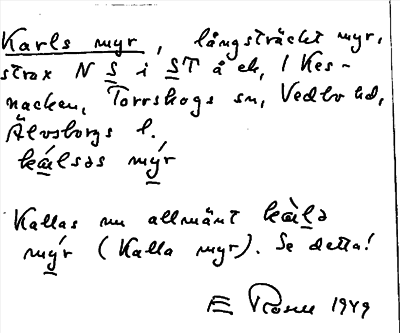 Karls myr, långsträckt myr,
strax N S i ST å ek, I Kes-
nacken, Torrskogs sn, Vedbo hd,
Älvsborgs l.
kálsəs mýr
Kallas nu allmänt kàlə
mýr (Kalla myr). Se detta!
E Rosell 1949